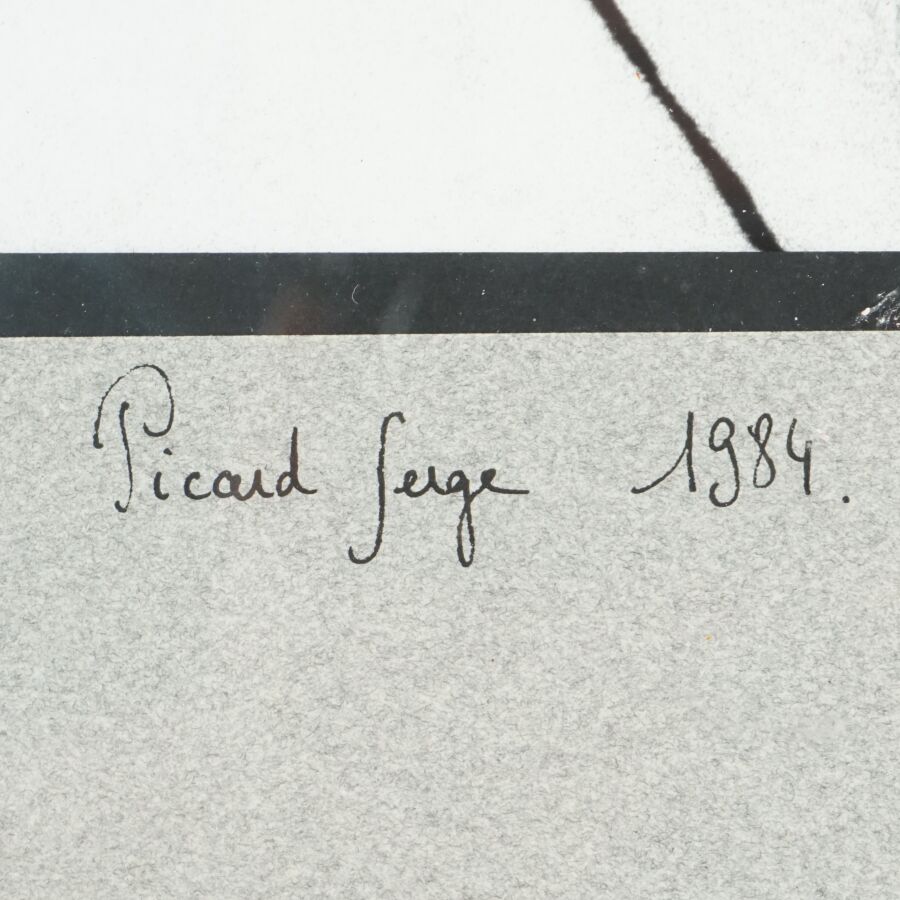 Picard Serge 1984.